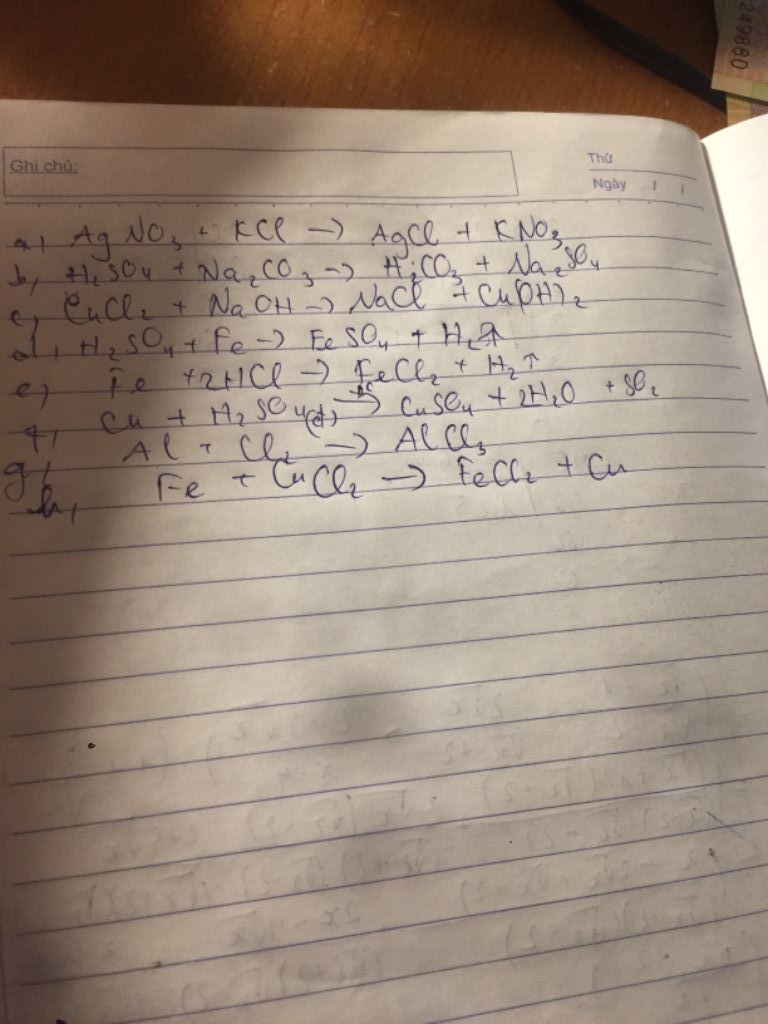 249880
Ghi chú:
Thứ
Ngày / /
a, AgNO₃ + KCl → AgCl + KNO₃
b, H₂SO₄ + Na₂CO₃ → H₂CO₃ + Na₂SO₄
c, CuCl₂ + NaOH → NaCl + Cu(OH)₂
d, H₂SO₄ + Fe → FeSO₄ + H₂↑
e, Fe + 2HCl → FeCl₂ + H₂↑
f, Cu + H₂SO₄(đ) → CuSO₄ + 2H₂O + SO₂
g, Al + Cl₂ → AlCl₃
h, Fe + CuCl₂ → FeCl₂ + Cu